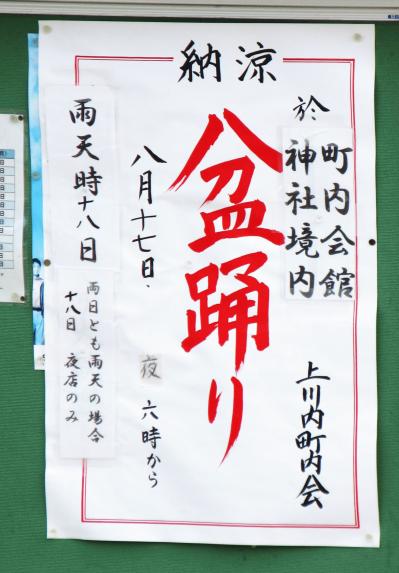 納涼
於
町内会館
神社境内
盆踊り
八月十七日、夜六時から
雨天時十八日
両日とも雨天の場合
十八日 夜店のみ
上川内町内会